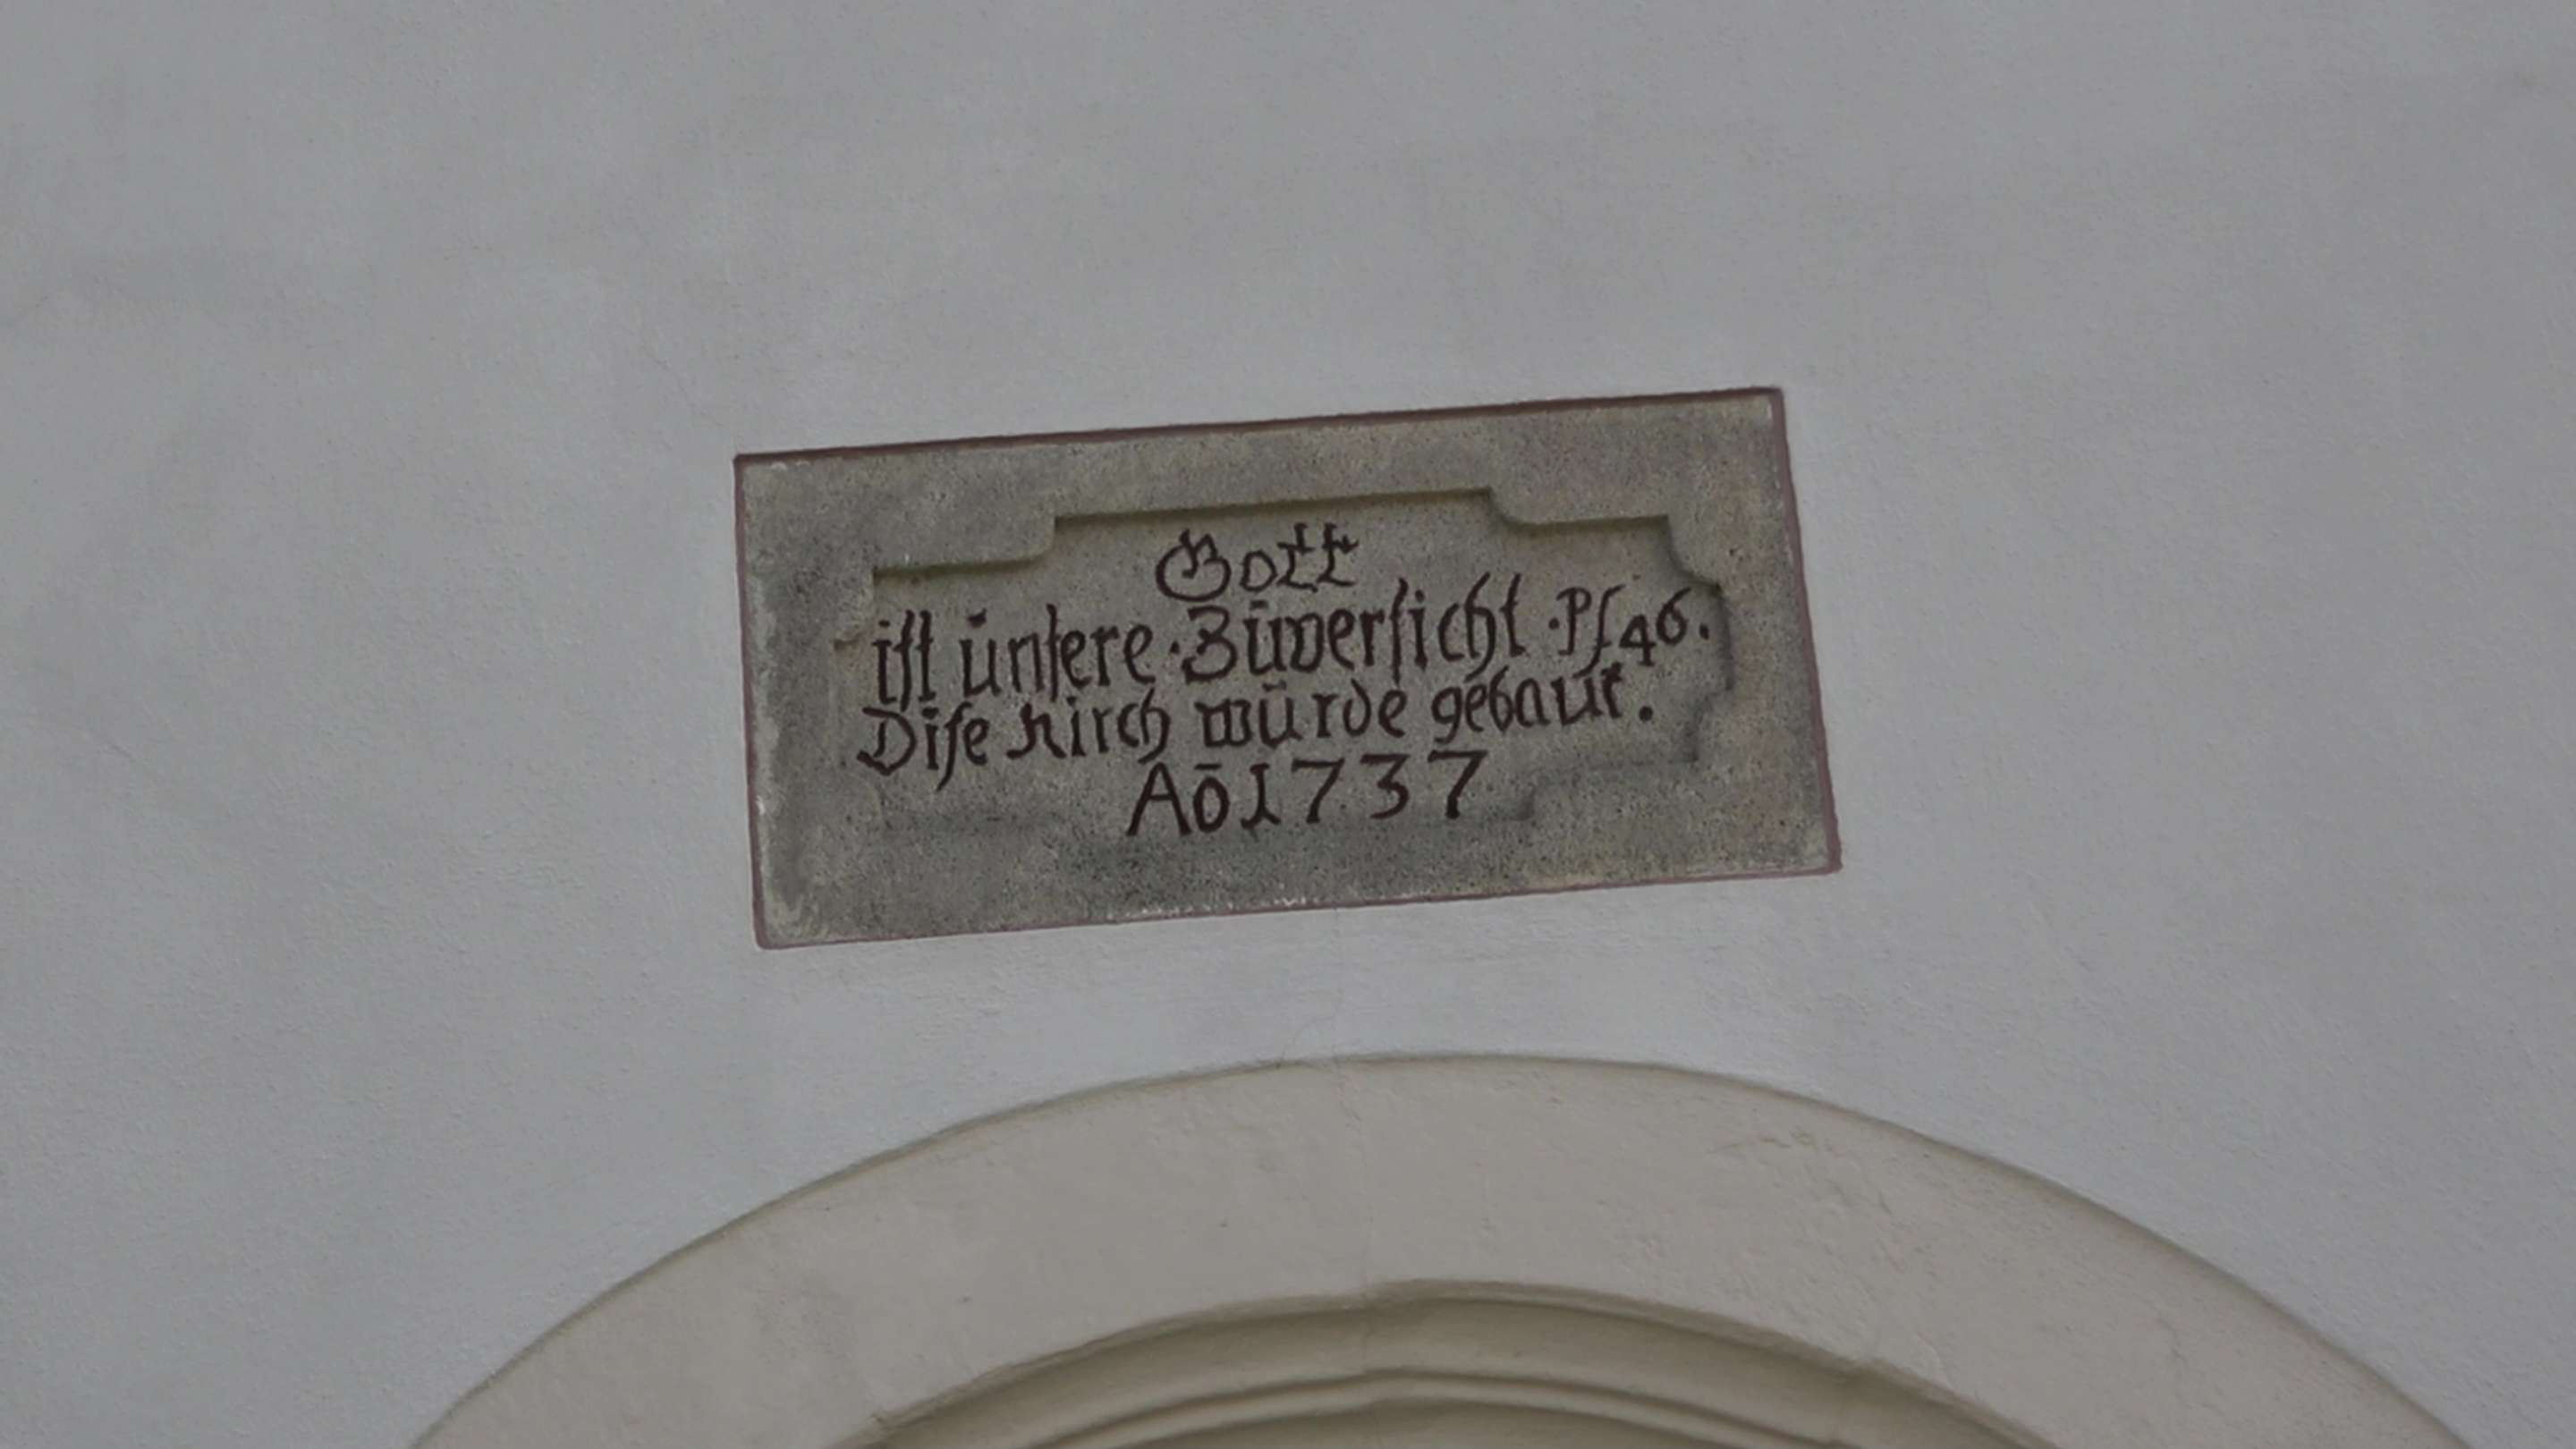 Gott
iſt ŭnſere · Zŭverſicht · Pſ 46.
Diſe Kirch wŭrde gebaut.
Aō 1737